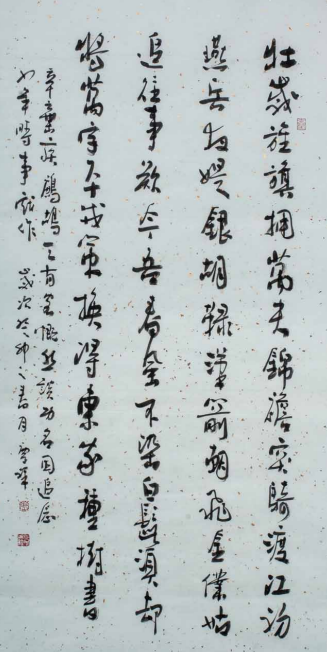 壯歲旌旗擁萬夫錦襜突騎渡江初
燕兵夜娖銀胡䩮漢箭朝飛金僕姑
追往事歎今吾春風不染白髭須却
將萬字平戎策換得東家種樹書
辛棄疾鷓鴣天有客慨然談功名因追念
少年時事戲作 歲次癸卯之春月